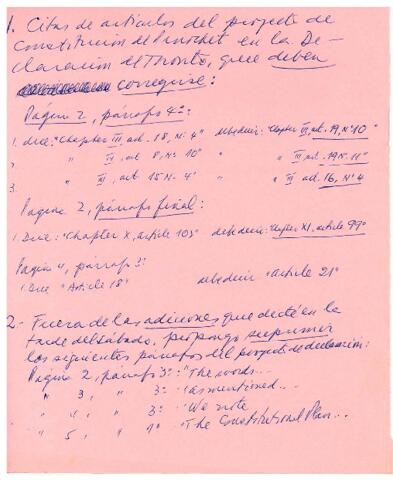 1. Citas de artículos del proyecto de
Constitución de Pinochet en la De-
claración de Toronto, que deben
corregirse:
Página 2, párrafo 4º:
1. dice: "Chapter III, art. 18, Nº 4" debe decir: Chapter III, art. 19, Nº 10"
2. " III, art 8, Nº 10º " III, art. 19 Nº 11"
3. " III, art 15 Nº 4" " III art. 16, Nº 4
Página 2, párrafo final:
1. Dice: "Chapter X, article 103" debe decir: Chapter XI, article 99"
Página 4, párrafo 3:
1. Dice "Article 18" debe decir "article 21"
2.- Fuera de las adiciones que dicté en la
tarde del sábado, propongo suprimir
los siguientes párrafos del proyecto de declaración:
Página 2, párrafo 3º: "The words...
" 3, " 3: "as mentioned...
" 4, " 3: "We note
" 5, " 1º "The Constitutional Plan...